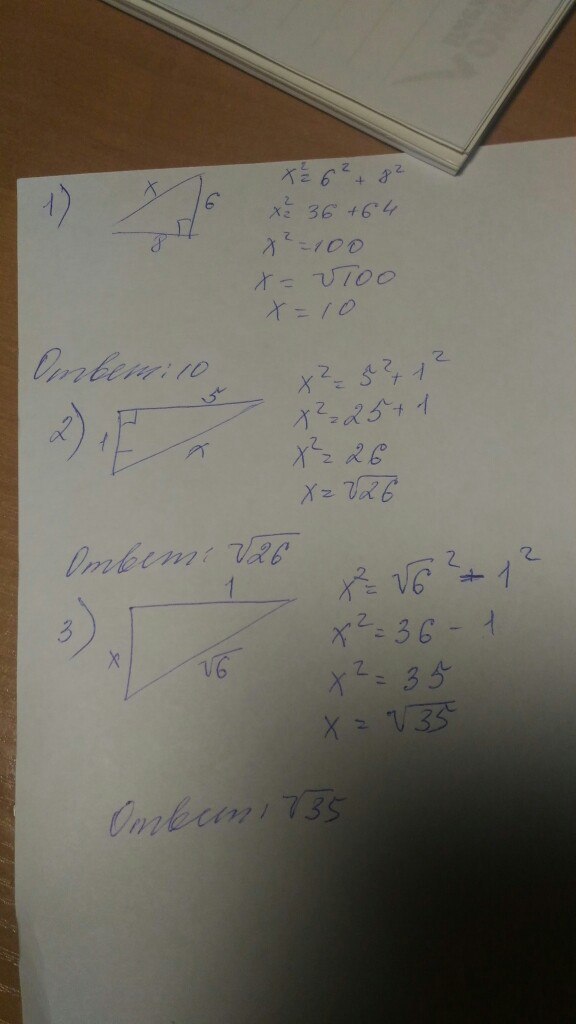 1)
x
6
8
x²= 6² + 8²
x²= 36 + 64
x² = 100
x = √100
x = 10
Ответ: 10
2)
5
1
x
x² = 5² + 1²
x² = 25 + 1
x² = 26
x = √26
Ответ: √26
3)
1
x
√6
x² = √6² - 1²
x² = 36 - 1
x² = 35
x = √35
Ответ: √35